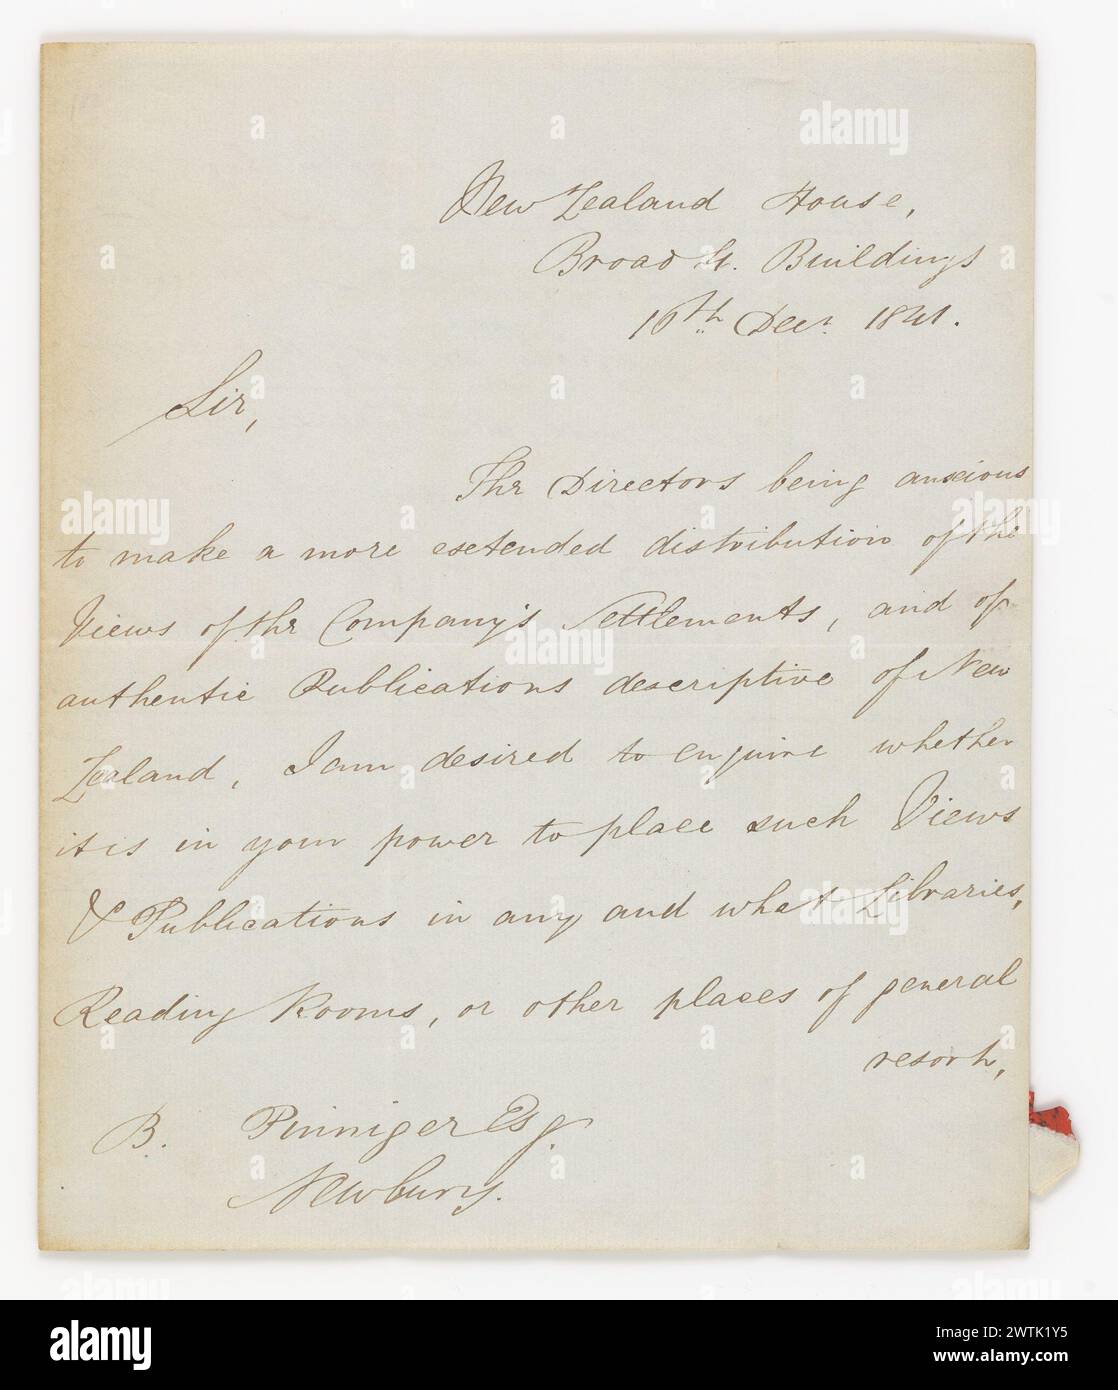 New Zealand House,
Broad St. Buildings
10th Decr. 1841.
Sir,
The Directors being anxious
to make a more extended distribution of the
Views of the Company's Settlements, and of
authentic Publications descriptive of New
Zealand, I am desired to enquire whether
it is in your power to place such Views
& Publications in any and what Libraries,
Reading Rooms, or other places of general
resort,
B. Pinniger Esq.
Newbury.
alamy
Image ID: 2WTK1Y5
www.alamy.com